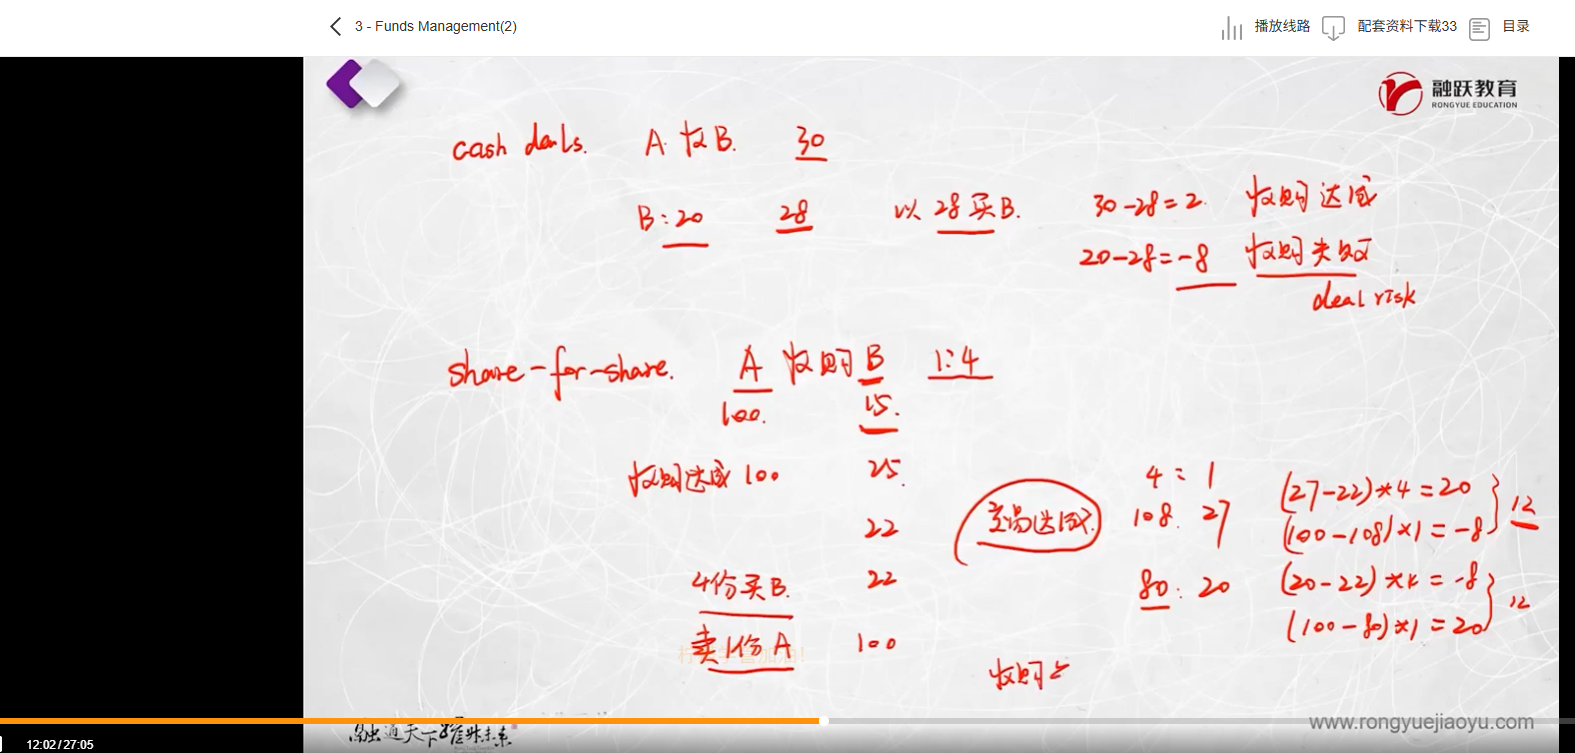 3 - Funds Management(2)
播放线路 配套资料下载33 目录
融跃教育
RONGYUE EDUCATION
cash deals. A 收B. 30
B:20 28 以 28 买B. 30-28=2. 收购达成
20-28=-8 收购失败
deal risk
share-for-share. A 收购 B 1:4
100. 15.
收购达成 100 25.
22
4份买B. 22
卖1份A 100
交易达成
4:1
108. 27
80:20
(27-22)*4=20
(100-108)×1=-8
12
(20-22)×4=-8
(100-80)×1=20
12
收购
www.rongyuejiaoyu.com
12:02/27:05